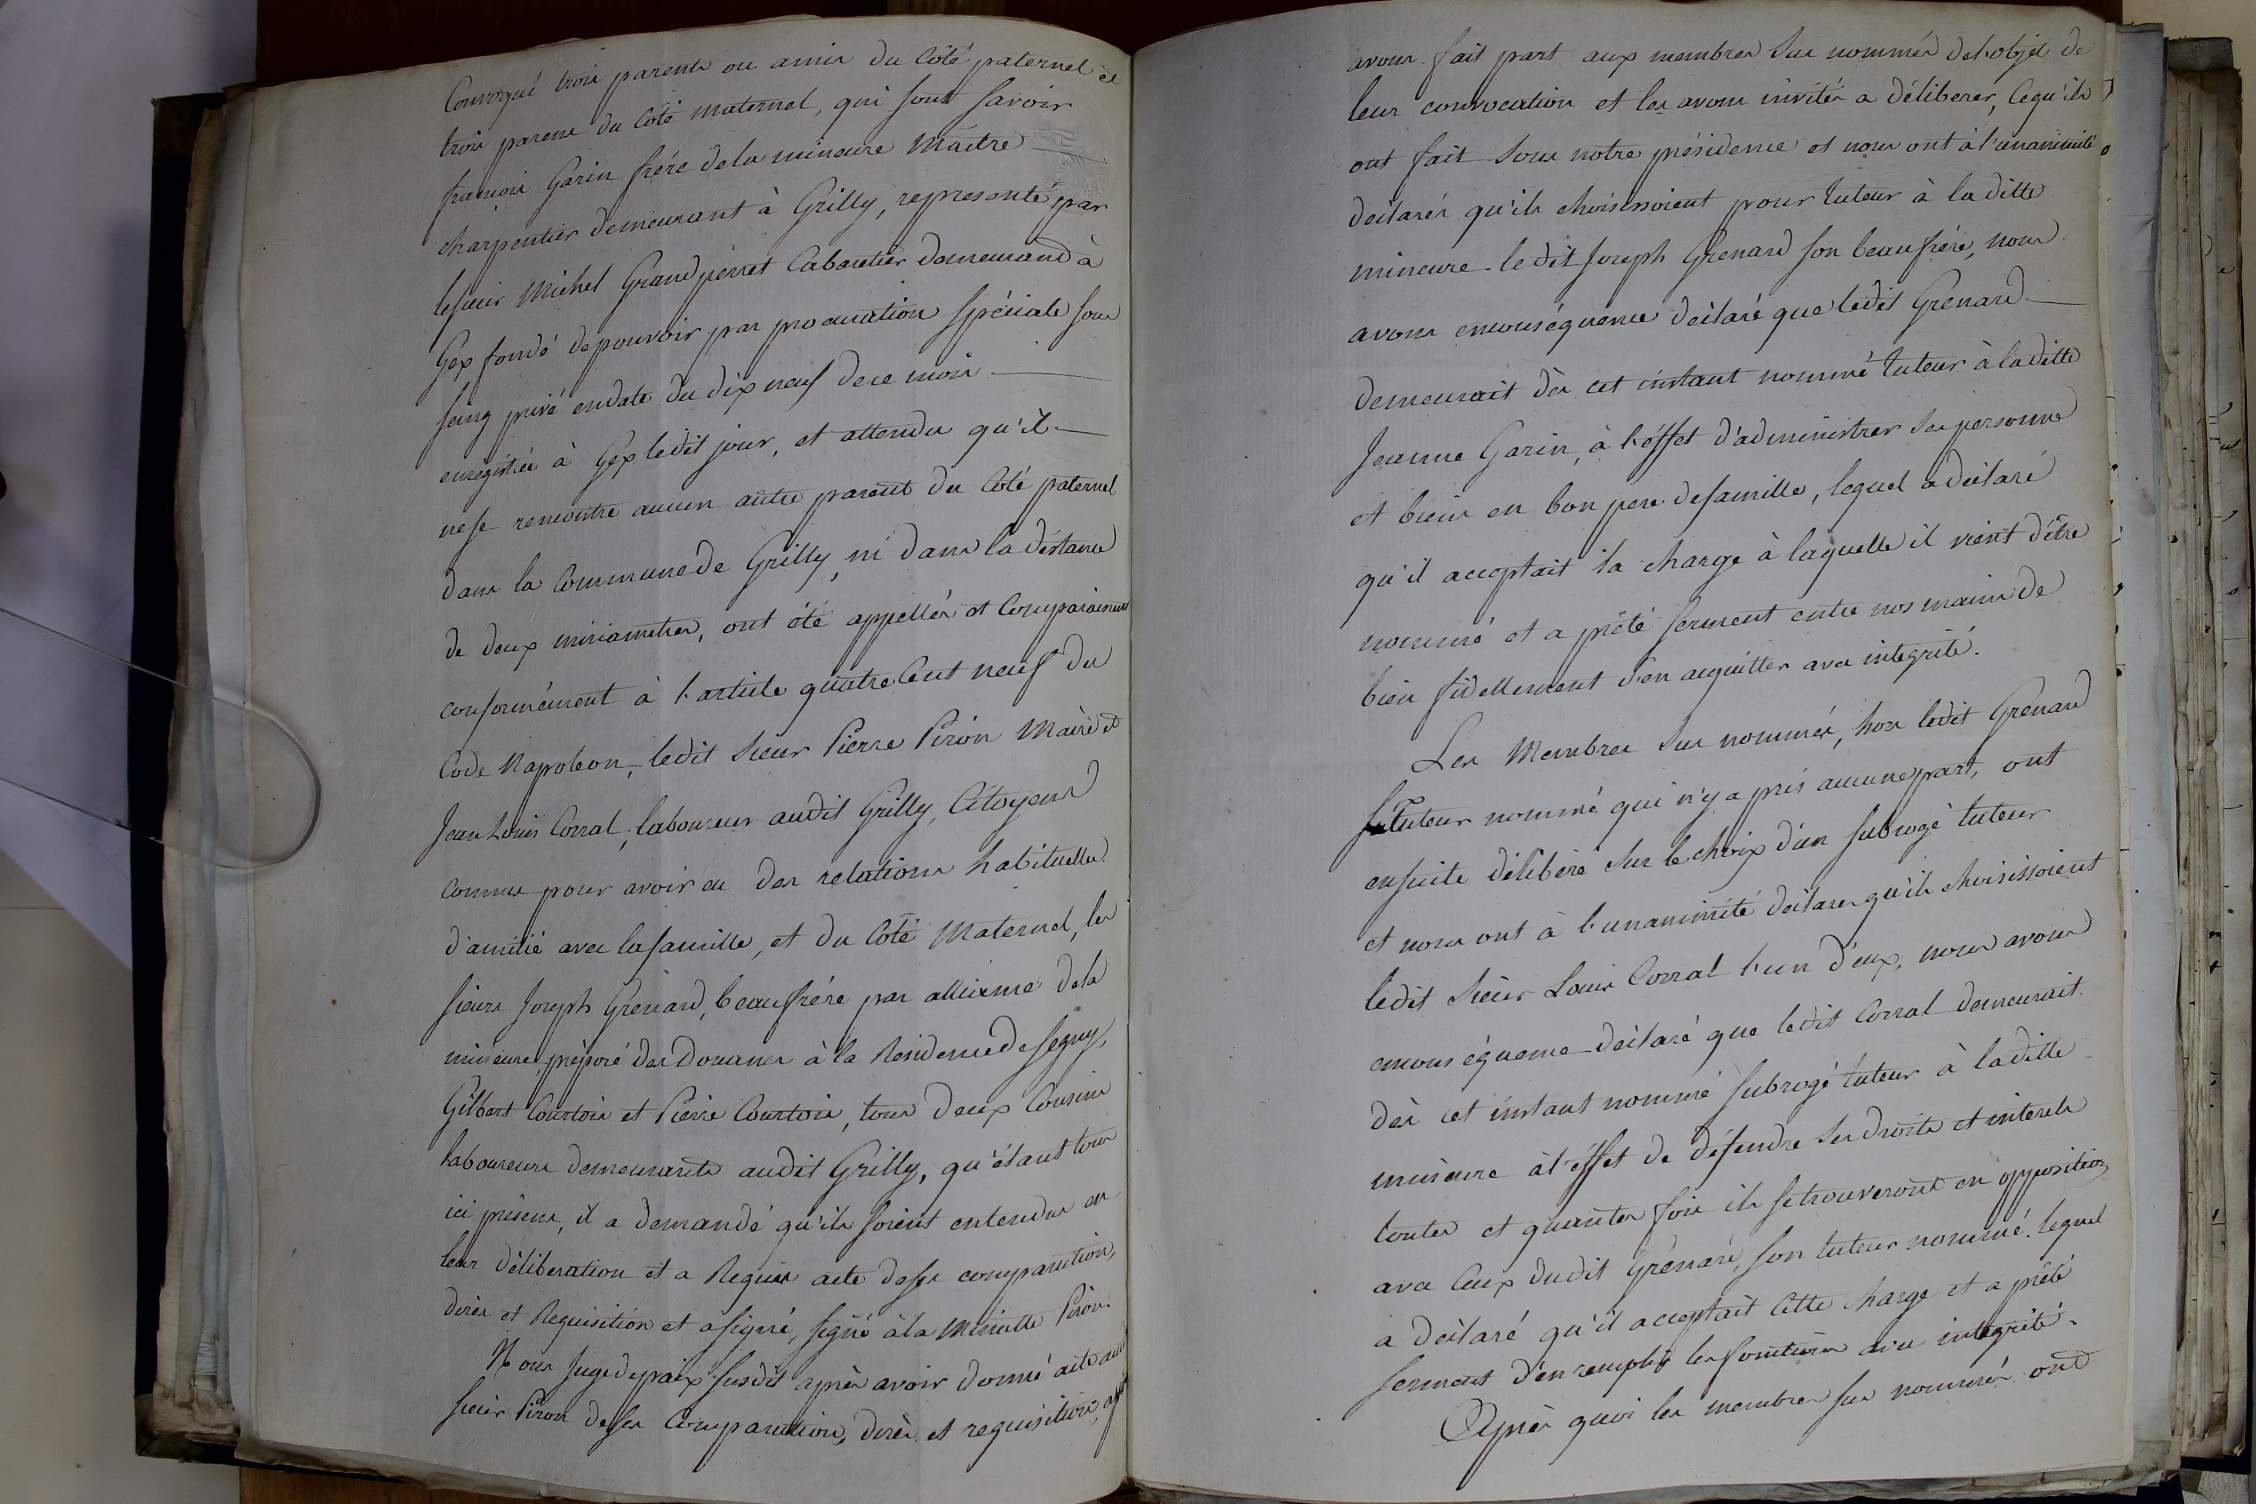 Convoqué trois parents ou amis du Côté paternel et
trois parens du Coté maternel, qui sont savoir
françois Garin frére dela mineure Maitre
charpentier demeurant à Grilly, representé par
lesieur Michel Grandperret Cabaretier demeurand à
Gex fondé depouvoir par procuration spéciale sous
seing privé endate du dix neuf dece mois
enregistrée à Gex ledit jour, et attendu qu'il
nese rencontre aucun autre parent du Coté paternel
dans la Commune de Grilly, ni dans la distance
de deux miriametres, ont été appellés et Comparaissent
conformément à l'article quatre Cent neuf du
Code Napoleon, ledit sieur Pierre Piron Maire et
Jean Louis Corral, laboureur audit Grilly, Citoyens
connus pour avoir eu des relations habituelles
d'amitié avec lafamille, et du Coté Maternel, les
sieurs Joseph Grenard, beaufrére par alliance dela
mineure, préposé des Douanes à la Residence de Segny,
Gilbert Courtois et Pierre Courtois, tous deux Cousins
laboureurs demeurants audit Grilly, qu'étant tous
ici présens, il a demandé qu'ils soient entendus en
leur déliberation et a Requis acte deses comparution,
dires et Requisition et asigné, signé à la Minutte Piron.
Nous Juge depaix susdit après avoir donné acte audit
sieur Piron deses Comparution, dires et requisition,
avons fait part aux membres sus nommés del'objet de
leur convocation et les avons invités a déliberer, Cequ'ils
ont fait sous notre présidence et nous ont à l'unanimité
déclarés qu'ils choisissoient pour tuteur à la ditte
mineure ledit Joseph Grenard son beaufrére, nous
avons enconséquence déclaré que ledit Grenard
demeurait dès cet instant nommé tuteur à laditte
Jeanne Garin, à l'éffet d'administrer sa personne
et biens en bon pere defamille, lequel a déclaré
qu'il acceptait la charge à laquelle il vient d'être
nommé et a prêté serment entre nos mains de
bien fidellement s'en acquitter avec intégrité.
Les Membres sus nommés, hors ledit Grenard
Tuteur nommé qui n'y a pris aucune part, ont
ensuite délibéré sur le choix d'un subrogé tuteur
et nous ont à l'unanimité déclarer qu'ils choisissoient
ledit sieur Louis Corral l'un d'eux, nous avons
enconséquence déclaré que ledit Corral demeurait
dès cet instant nommé subrogé tuteur à laditte
mineure à l'éffet de défendre ses droits et interets
toutes et quantes fois ils setrouveront en opposition
avec Ceux dudit Grénard, son tuteur nommé. lequel
a déclaré qu'il acceptait Cette charge et a prêté
serment d'en remplir les fonctions avec intégrité.
Après quoi les membres sus nommés ont